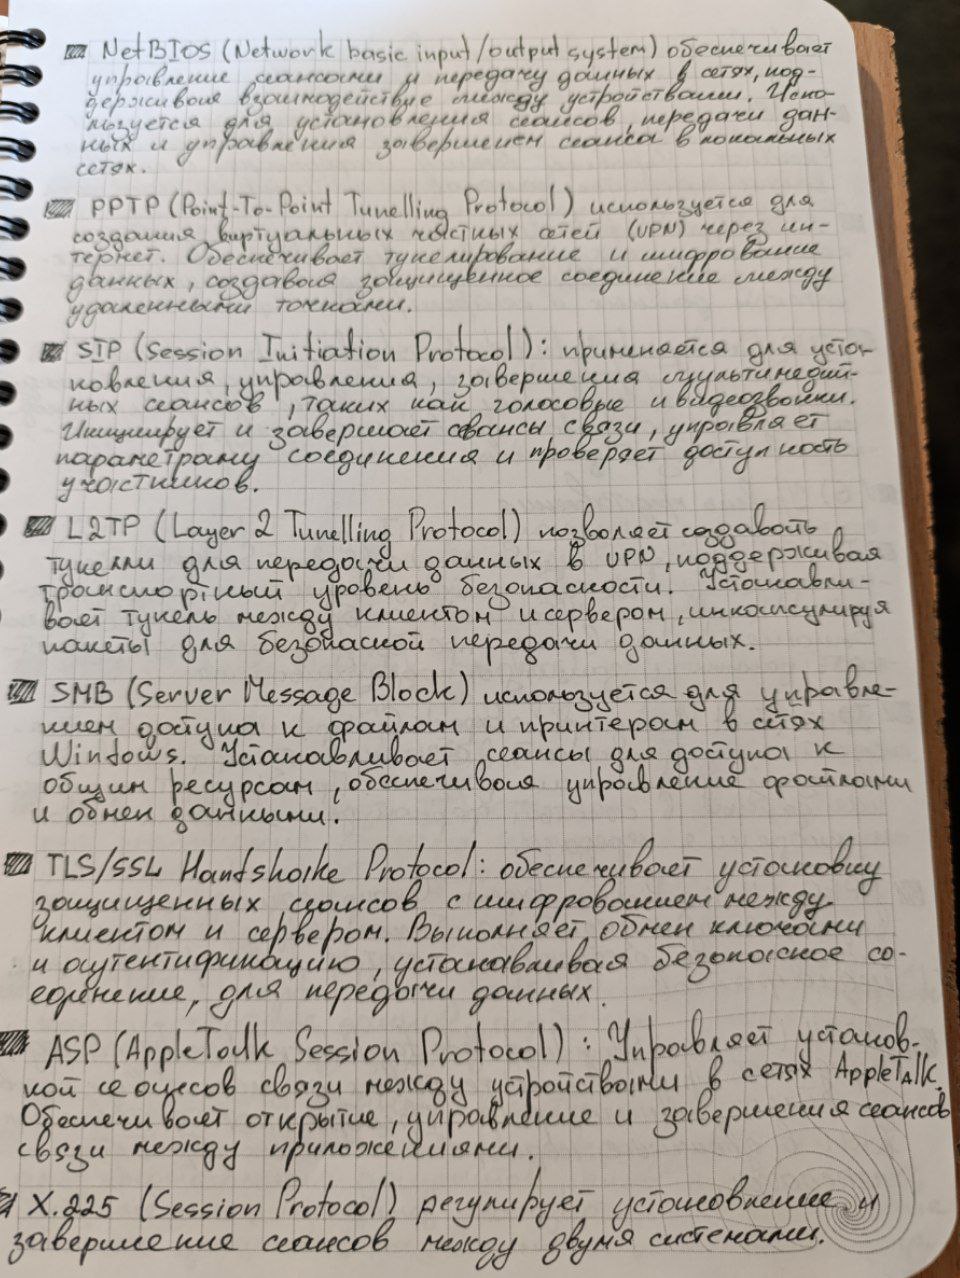 NetBIOS (Network basic input/output system) обеспечивает
управление сеансами и передачу данных в сетях, под-
держивая взаимодействие между устройствами. Испо-
льзуется для установления сеансов, передачи дан-
ных и управления завершением сеанса в локальных
сетях.
PPTP (Point-To-Point Tunelling Protocol) используется для
создания виртуальных частных сетей (VPN) через ин-
тернет. Обеспечивает тунелирование и шифрование
данных, создавая защищенное соединение между
удаленными точками.
SIP (Session Initiation Protocol): применяется для уста-
новления, управления, завершения мультимедий-
ных сеансов, таких как голосовые и видеозвонки.
Инициирует и завершает сеансы связи, управляет
параметрами соединения и проверяет доступность
участников.
L2TP (Layer 2 Tunelling Protocol) позволяет создавать
тунелли для передачи данных в VPN, поддерживая
транспортный уровень безопасности. Устанавли-
вает тунель между клиентом и сервером, инкапсулируя
пакеты для безопасной передачи данных.
SMB (Server Message Block) используется для управле-
нием доступа к файлам и принтерам в сетях
Windows. Устанавливает сеансы для доступа к
общим ресурсам, обеспечивая управление файлами
и обмен данными.
TLS/SSL Handshake Protocol: обеспечивает установку
защищенных сеансов с шифрованием между
клиентом и сервером. Выполняет обмен ключами
и аутентификацию, устанавливая безопасное со-
единение, для передачи данных.
ASP (AppleTalk Session Protocol): Управляет установ-
кой сеансов связи между устройствами в сетях AppleTalk.
Обеспечивает открытие, управление и завершения сеансов
связи между приложениями.
X.225 (Session Protocol) регулирует установление и
завершение сеансов между двумя системами.